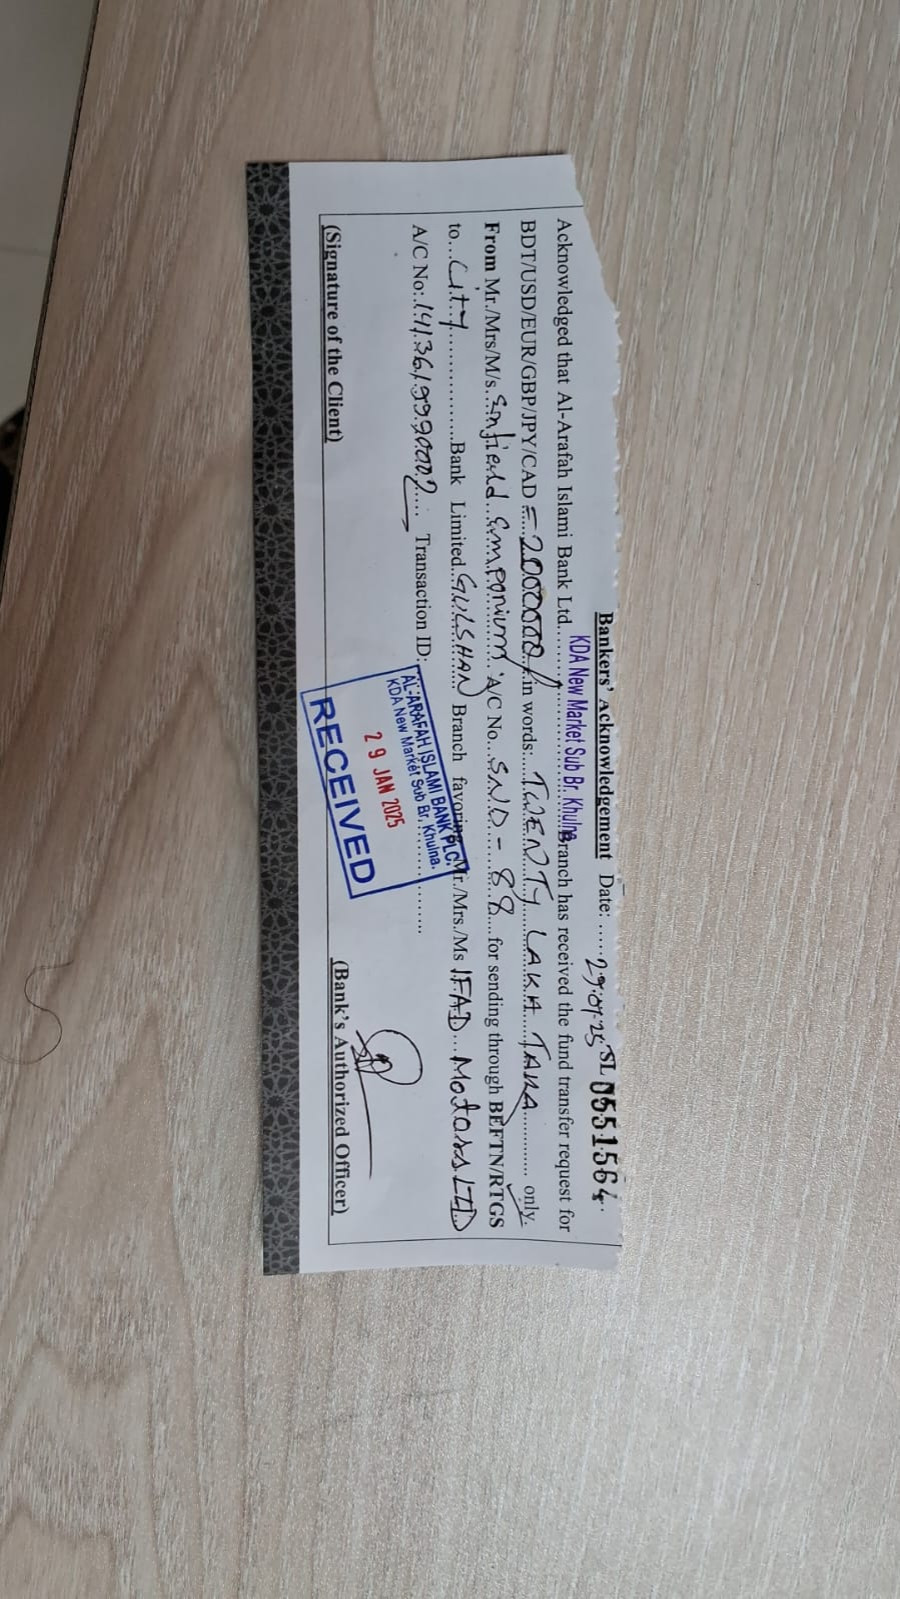 Bankers' Acknowledgement Date: .....29.01.25 SL 0551564
Acknowledged that Al-Arafah Islami Bank Ltd. KDA New Market Sub Br. Khulna Branch has received the fund transfer request for
BDT/USD/EUR/GBP/JPY/CAD =2000000/ in words: TWENTY LAKH TAKA only.
From Mr./Mrs/M/s. Enfield Emporium A/C No. SND - 88 for sending through BEFTN/RTGS
to City Bank Limited GULSHAN Branch favoring Mr./Mrs./Ms IFAD Motors LTD
A/C No: Transaction ID:
AL-ARAFAH ISLAMI BANK PLC.
KDA New Market Sub Br, Khulna.
29 JAN 2025
RECEIVED
(Signature of the Client) (Bank's Authorized Officer)